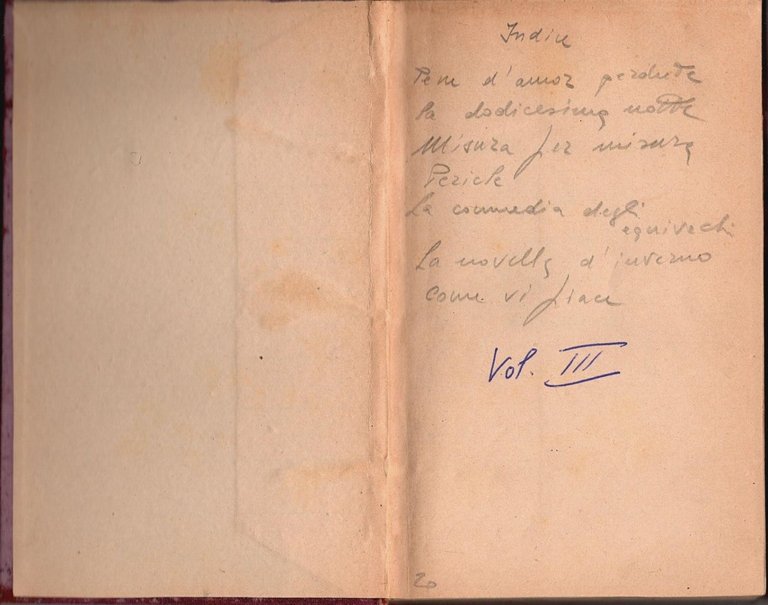 Indice
Pene d'amor perdute
La dodicesima notte
Misura per misura
Pericle
La commedia degli
equivochi
La novella d'inverno
Come vi piace
Vol. III
20